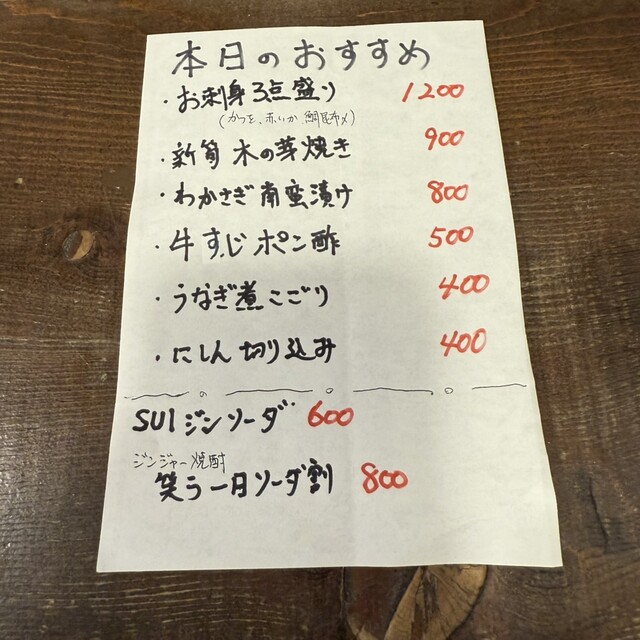 本日のおすすめ
・お刺身3点盛り 1200
(かつを、赤いか 鯛昆布〆)
・新筍 木の芽焼き 900
・わかさぎ南蛮漬け 800
・牛すじポン酢 500
・うなぎ煮こごり 400
・にしん切り込み 400
SUIジンソーダ 600
ジンジャー焼酎
笑う一日ソーダ割 800